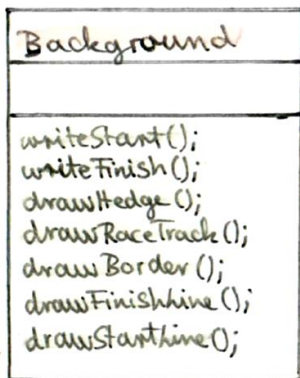 Background
writeStart();
writeFinish();
drawHedge();
drawRaceTrack();
drawBorder();
drawFinishLine();
drawStartLine();